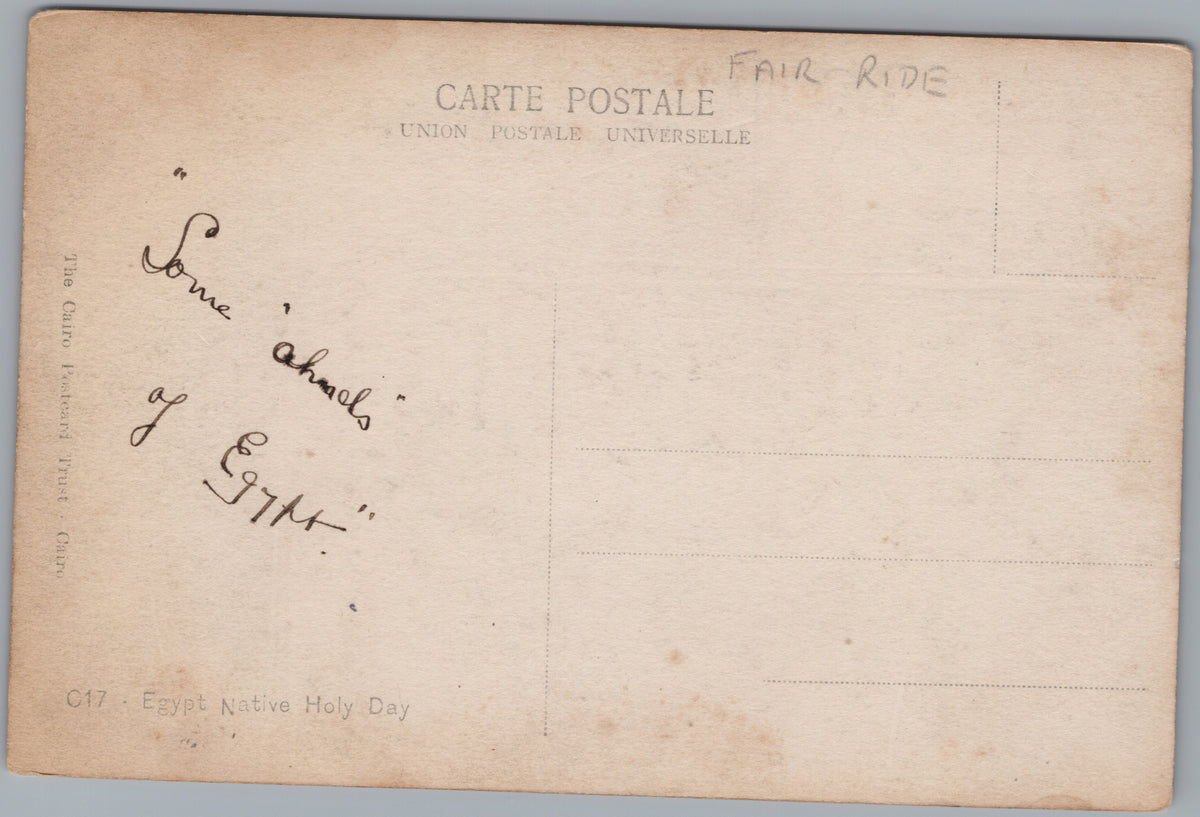 FAIR RIDE
CARTE POSTALE
UNION POSTALE UNIVERSELLE
"Some
"ahmeds"
of Egypt."
The Cairo Postcard Trust · Cairo
C17 - Egypt Native Holy Day